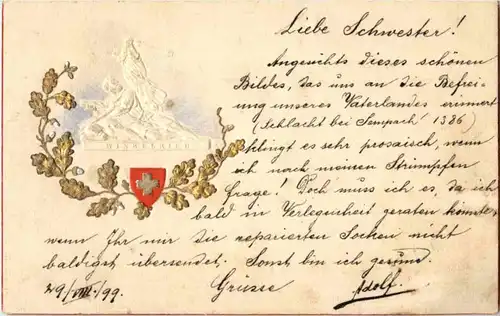 Liebe Schwester!
Angesichts dieses schönen
Bildes, das uns an die Befrei-
ung unseres Vaterlandes erinnert
(Schlacht bei Sempach 1386)
klingt es sehr prosaisch, wenn
ich nach meinen Strümpfen
frage! Doch muss ich es, da ich
bald in Verlegenheit geraten könnte
wenn Ihr mir die reparierten Socken nicht
baldigst übersendet. Sonst bin ich gesund.
29/VIII./99. Grüsse Adolf.
WINKELRIED